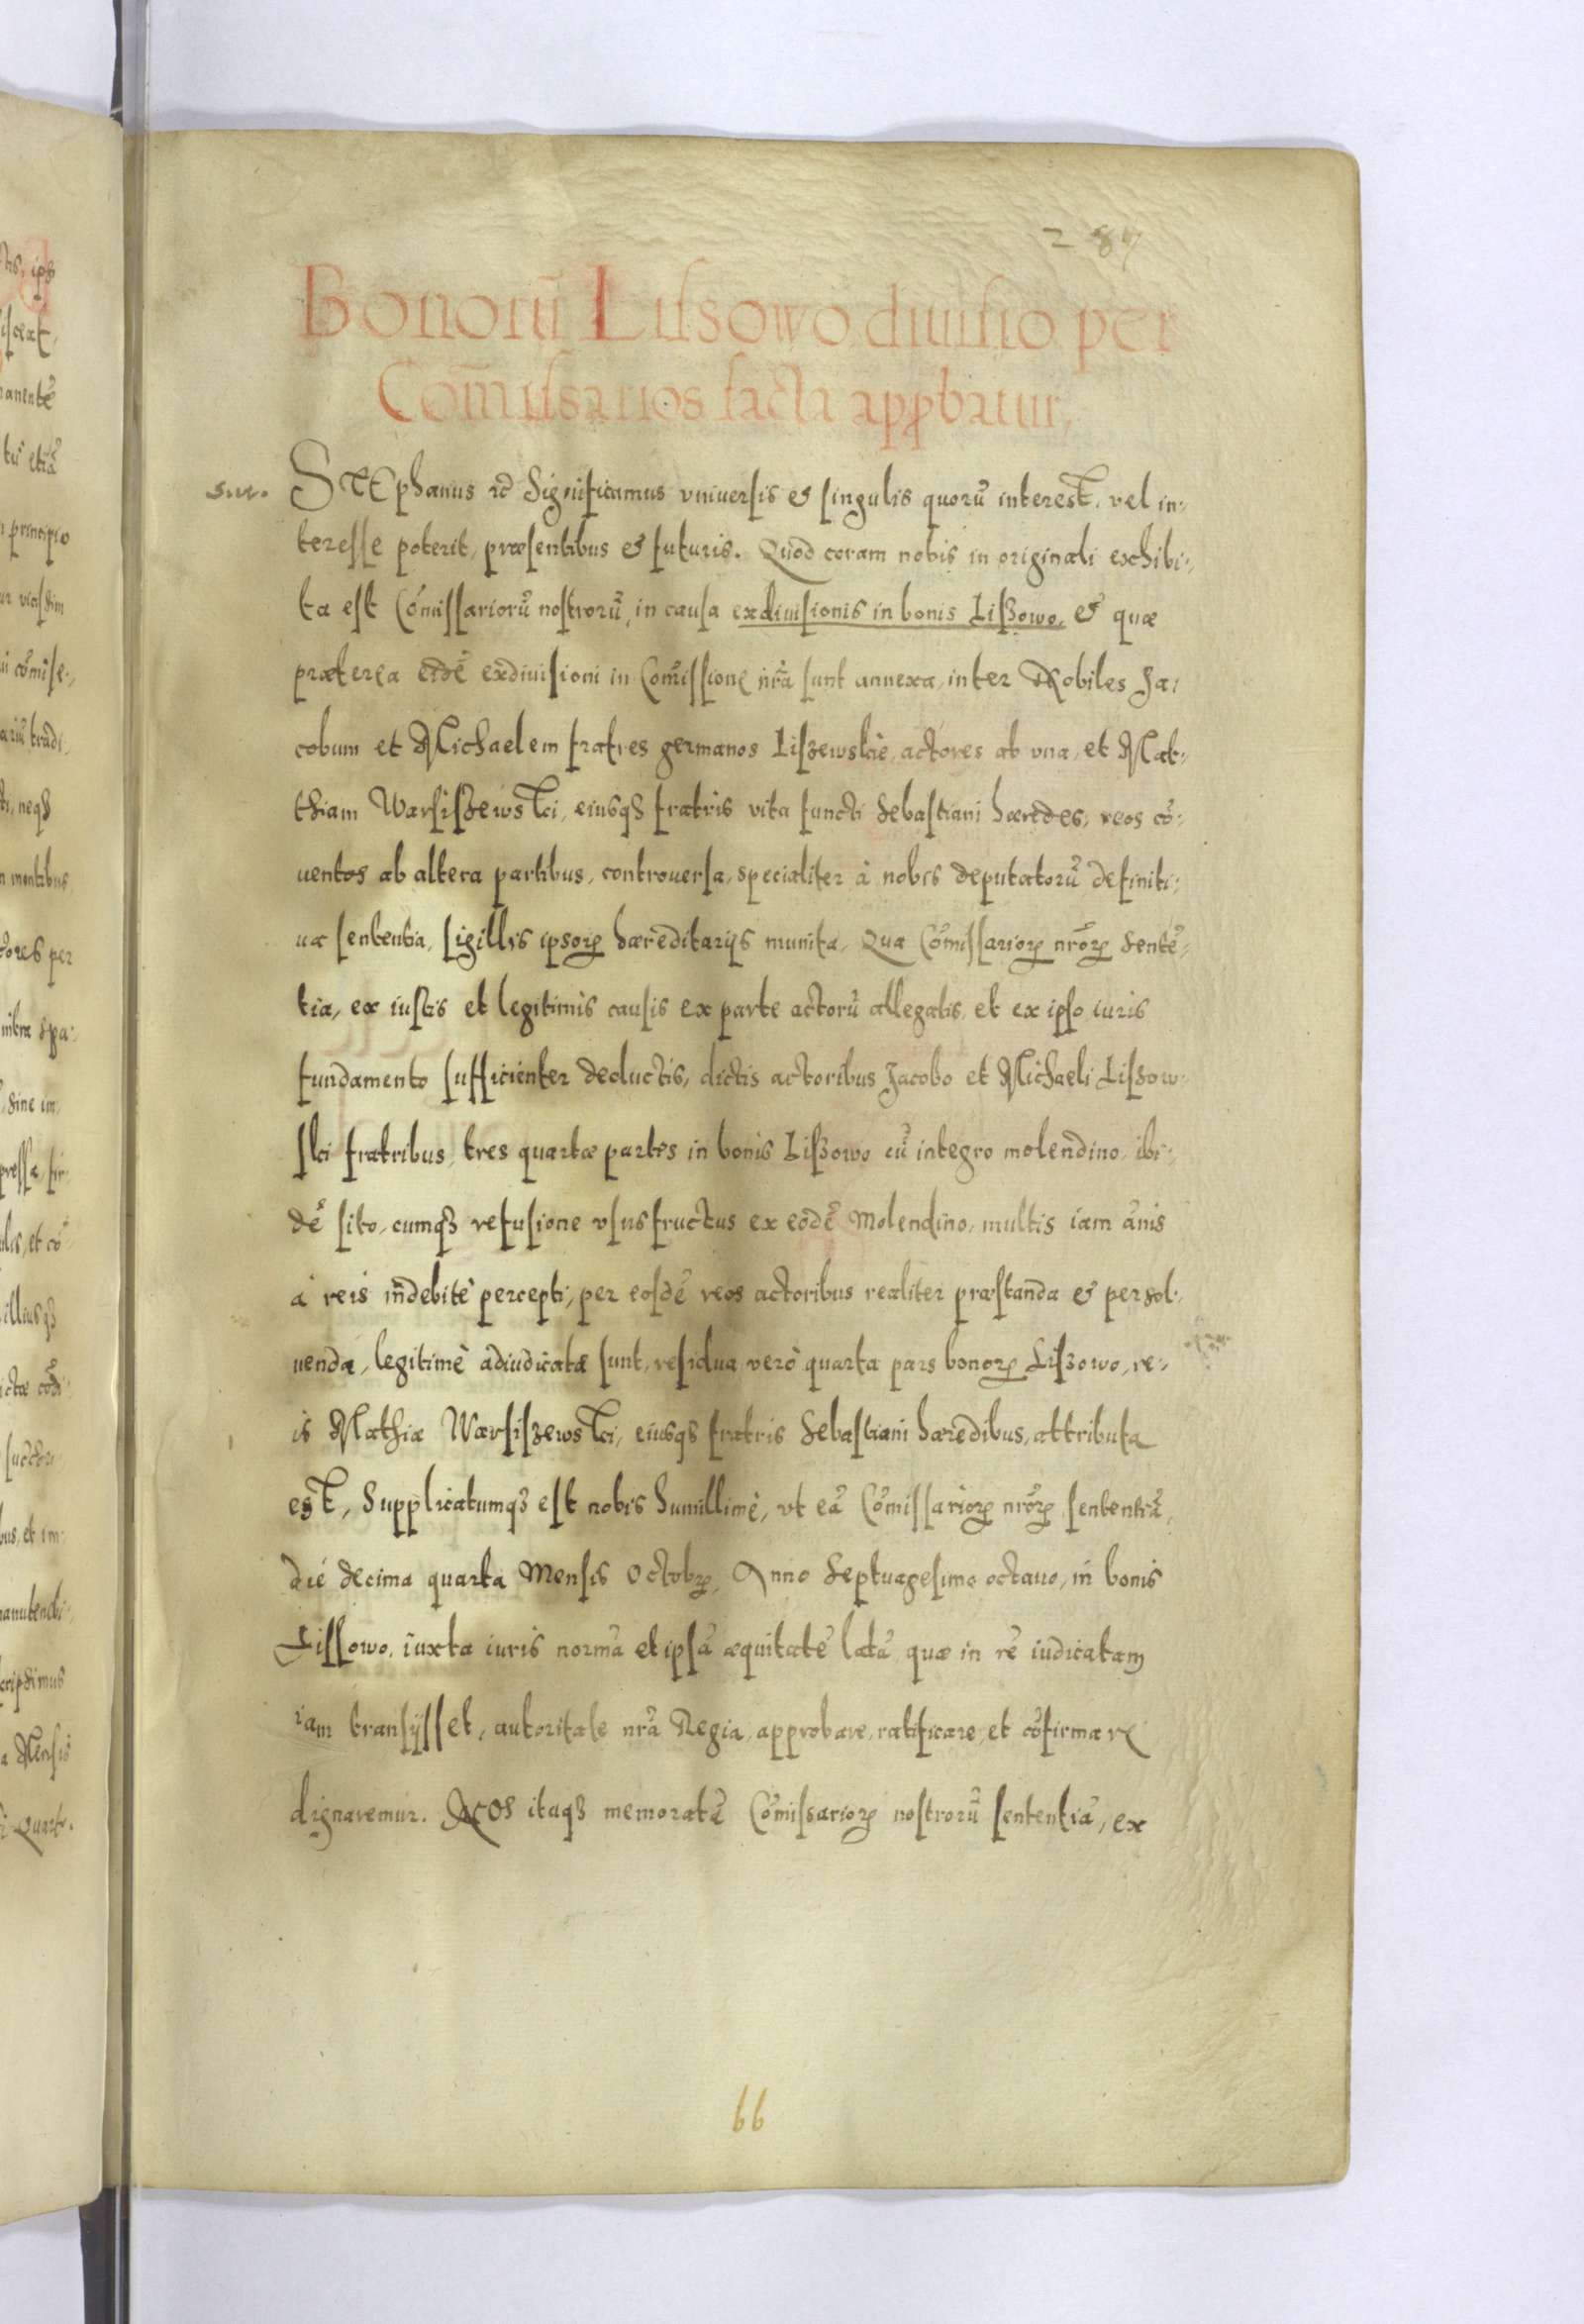 287
Bonorū Lissowo diuisio per
Com̄issarios facta apꝓbatur,
STEphanus ꝛc̄ Significamus vniuersis et singulis quorū interest, vel in-
teresse poterit, præsentibus et futuris. Quod coram nobis in originali exhibi-
ta est Com̄issariorū nostrorū, in causa exdiuisionis in bonis Liszowo, et quæ
præterea eidē exdiuisioni in Com̄issione nr̄a sunt annexa, inter Nobiles Ja-
cobum et Michaelem fratres germanos Liszewskie, actores ab vna, et Mat-
thiam Warsiszewski, eiusqȝ fratris vita functi Sebastiani hæredes, reos cō-
uentos ab altera partibus, controuersa, specialiter à nobis deputatorū definiti-
uæ sententia, sigillis ipsoꝝ hæreditarijs munita, Qua Com̄issarioꝝ nr̄oꝝ sentē-
tia, ex iustis et legitimis causis ex parte actorū allegatis, et ex ipso iuris
fundamento sufficienter deductis, dictis actoribus Jacobo et Michaeli Liszow-
ski fratribus, tres quartæ partes in bonis Liszowo cū integro molendino, ibi-
dē sito, cumqȝ refusione vsusfructus ex eodē Molendino, multis iam an̄is
à reis indebitè percepti, per eosdē reos actoribus realiter præstanda et persol-
uenda, legitimè adiudicatæ sunt, residua verò quarta pars bonoꝝ Liszowo, re-
is Mathiæ Warsiszewski, eiusqȝ fratris Sebastiani hæredibus, attributa
est, Supplicatumqȝ est nobis humillimè, vt eā Com̄issarioꝝ nr̄oꝝ sententiā,
die decima quarta Mensis Octobꝝ, Anno Septuagesimo octauo, in bonis
Lissowo, iuxta iuris normā et ipsā æquitatē latā, quæ in rē iudicatam
iam transijsset, autoritate nr̄a Regia, approbare, ratificare, et cōfirmare
dignaremur. Nos itaqȝ memoratā Com̄issarioꝝ nostrorū sententiā, ex
66